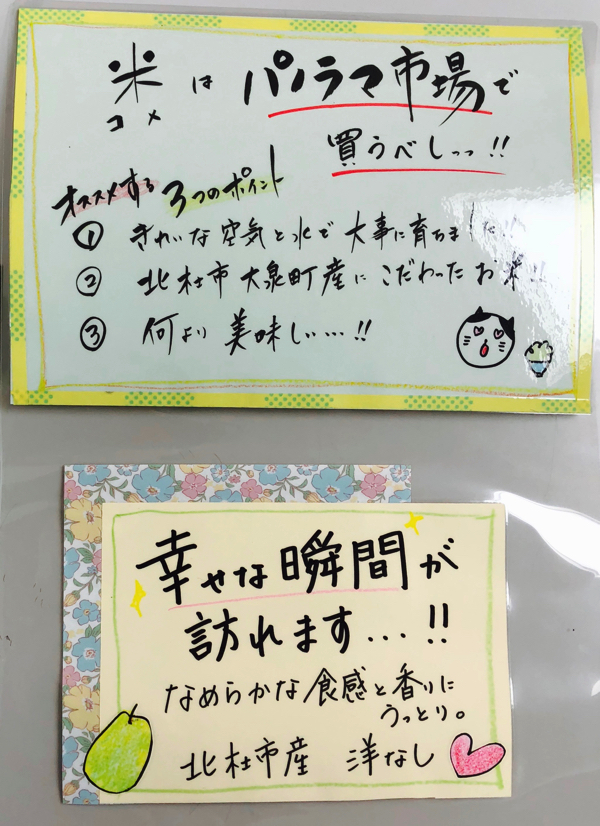 米は パノラマ市場で
コメ
買うべしっっ!!
オススメする 3つのポイント
① きれいな空気と水で 大事に育ちました!!
② 北杜市大泉町産にこだわったお米!!
③ 何より美味しい…!!
幸せな瞬間が
訪れます…!!
なめらかな食感と香りに
うっとり。
北杜市産 洋なし